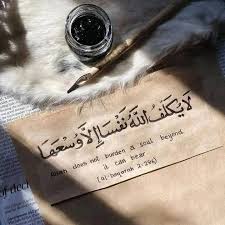 لَا يُكَلِّفُ اللَّهُ نَفْسًا إِلَّا وُسْعَهَا
Allah does not burden a soul beyond
it can bear
(al-baqarah 2:286)